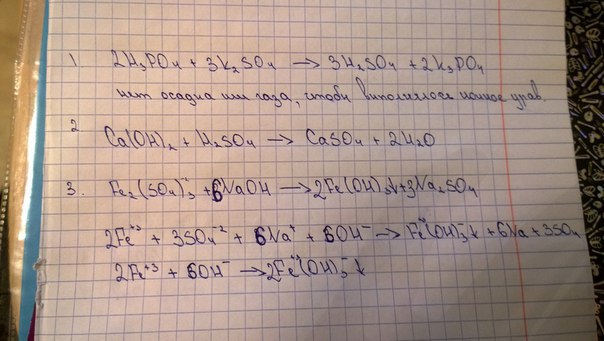 1. 2H₃PO₄ + 3K₂SO₄ → 3H₂SO₄ + 2K₃PO₄
нет осадка или газа, чтобы выполнялося ионное урав.
2 Ca(OH)₂ + H₂SO₄ → CaSO₄ + 2H₂O
3. Fe₂(SO₄)₃⁻² + 6NaOH → 2Fe(OH)₃↓ + 3Na₂SO₄
2Fe⁺³ + 3SO₄⁻² + 6Na⁺ + 6OH⁻ → Fe⁺³(OH)₃⁻↓ + 6Na + 3SO₄
2Fe⁺³ + 6OH⁻ → 2Fe⁺³(OH)₃⁻↓